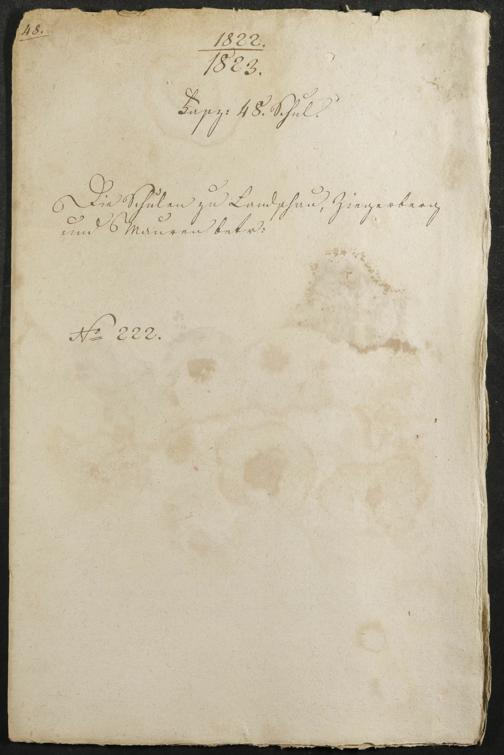 48.
1822.
1823.
Kapz: 48. Schul.
Die Schulen zu Landschau, Ziegerberg
und Mauren betr:
No 222.